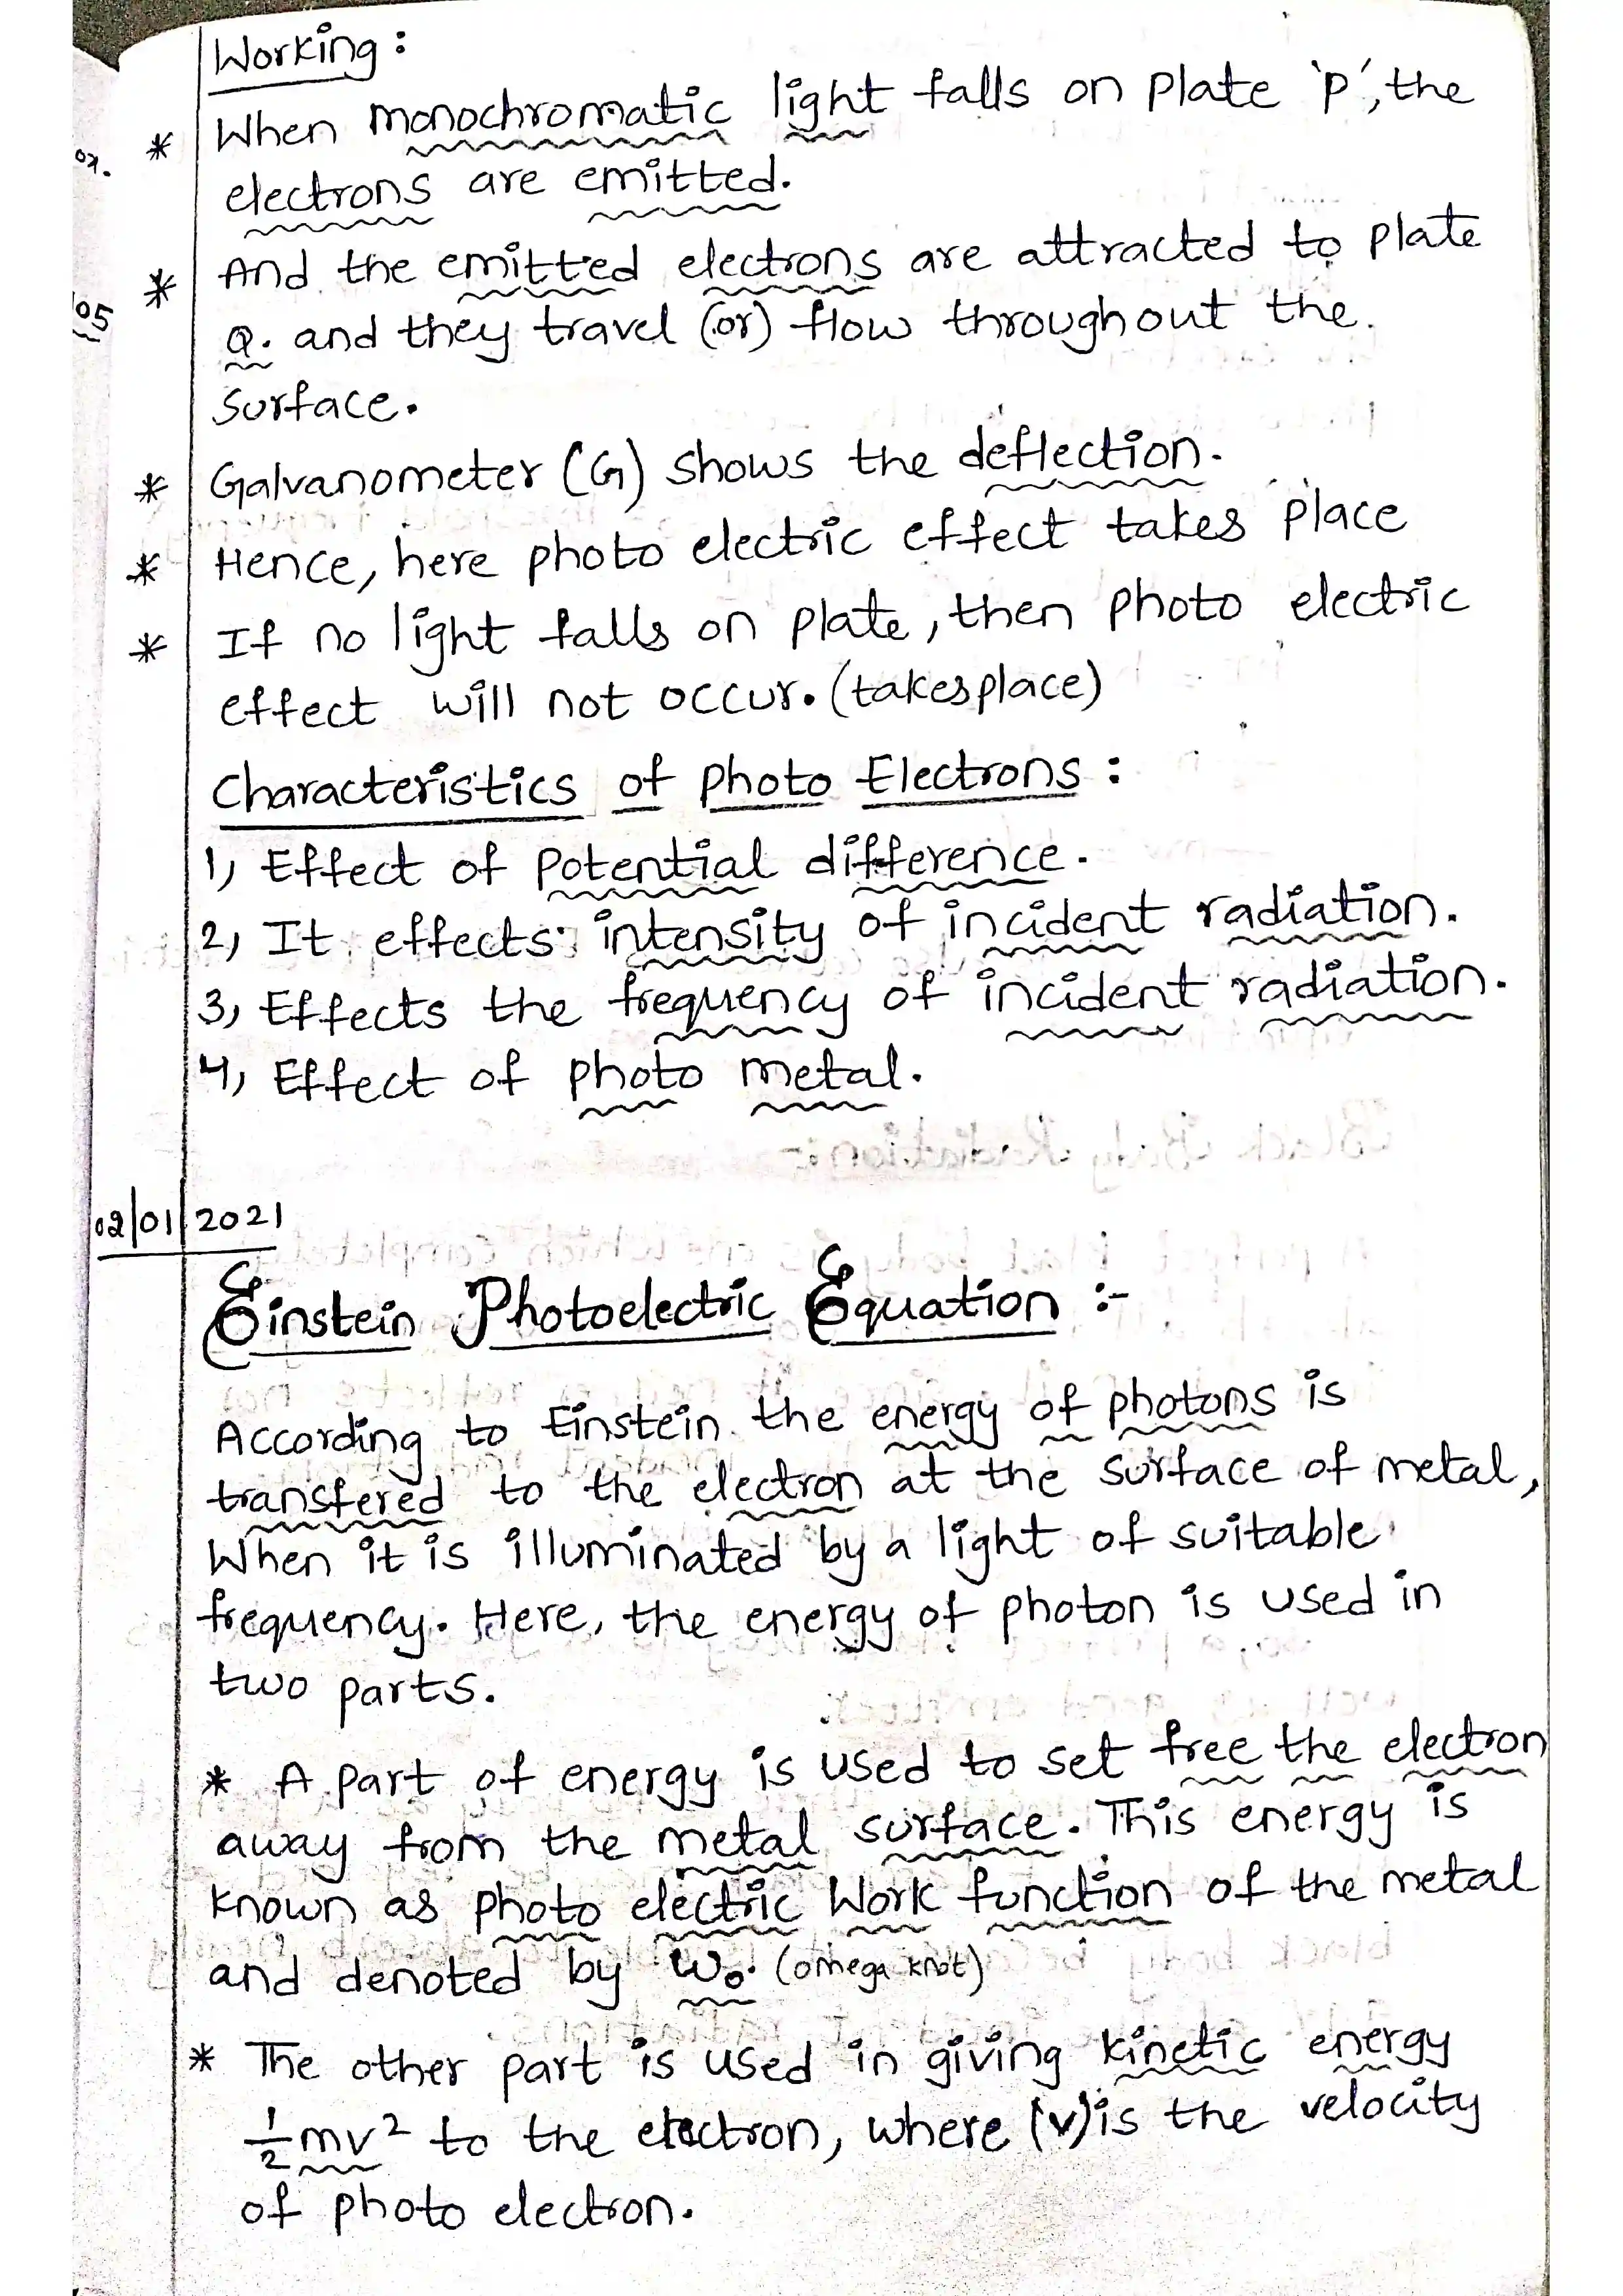 Working:
* When monochromatic light falls on plate 'P', the
electrons are emitted.
* And the emitted electrons are attracted to plate
Q. and they travel (or) flow throughout the
surface.
* Galvanometer (G) shows the deflection.
* Hence, here photo electric effect takes place
* If no light falls on plate, then photo electric
effect will not occur. (takesplace)
Characteristics of photo Electrons:
1, Effect of potential difference.
2, It effects intensity of incident radiation.
3, Effects the frequency of incident radiation.
4, Effect of photo metal.
02/01/2021
Einstein Photoelectric Equation :-
According to Einstein the energy of photons is
transfered to the electron at the surface of metal,
When it is illuminated by a light of suitable
frequency. Here, the energy of photon is used in
two parts.
* A part of energy is used to set free the electron
away from the metal surface. This energy is
known as photo electric work function of the metal
and denoted by W₀. (omega knot)
* The other part is used in giving kinetic energy
½mv² to the electron, where (v) is the velocity
of photo electron.